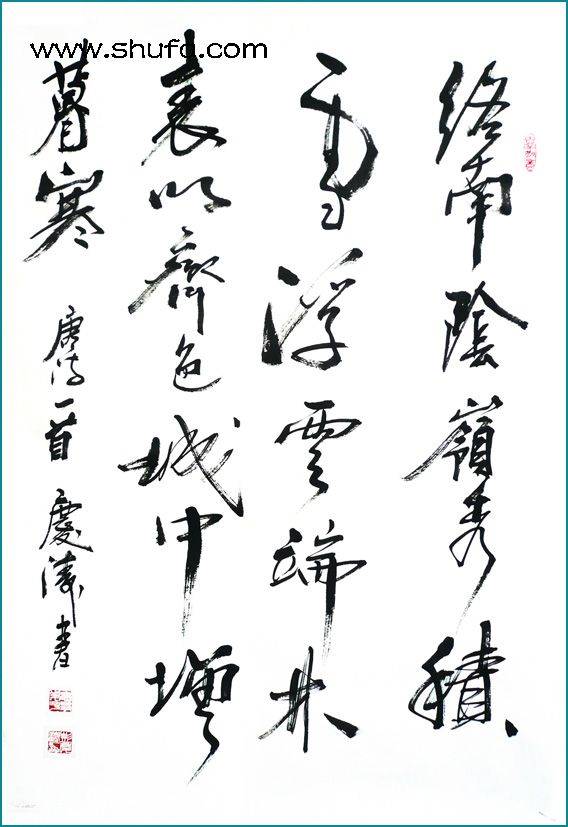 www.shufa.com
終南陰嶺秀積
雪浮雲端林
表明齊色城中增
暮寒
唐詩一首 慶濤書